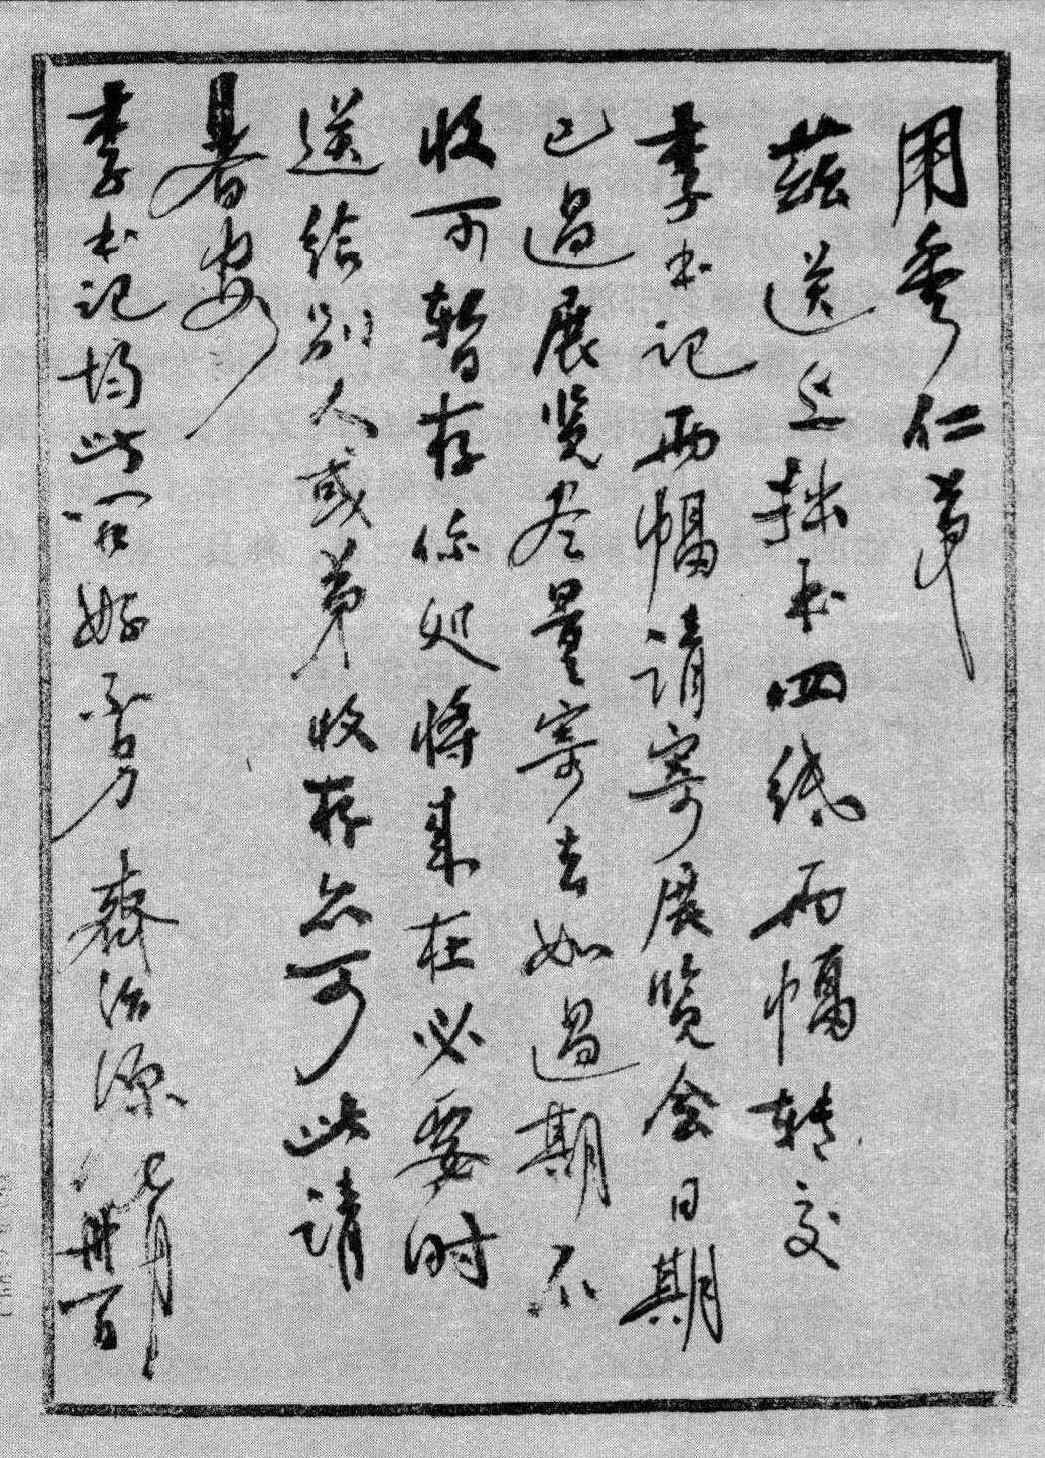 用亭仁弟
兹送上拙书四纸两幅转交
李书记两幅请寄展览会日期
已过展览尽量寄去如过期不
收可暂存你处将来在必要时
送给别人或弟收存亦可此请
暑安
李书记均此问好不另 治源 七月廿一日